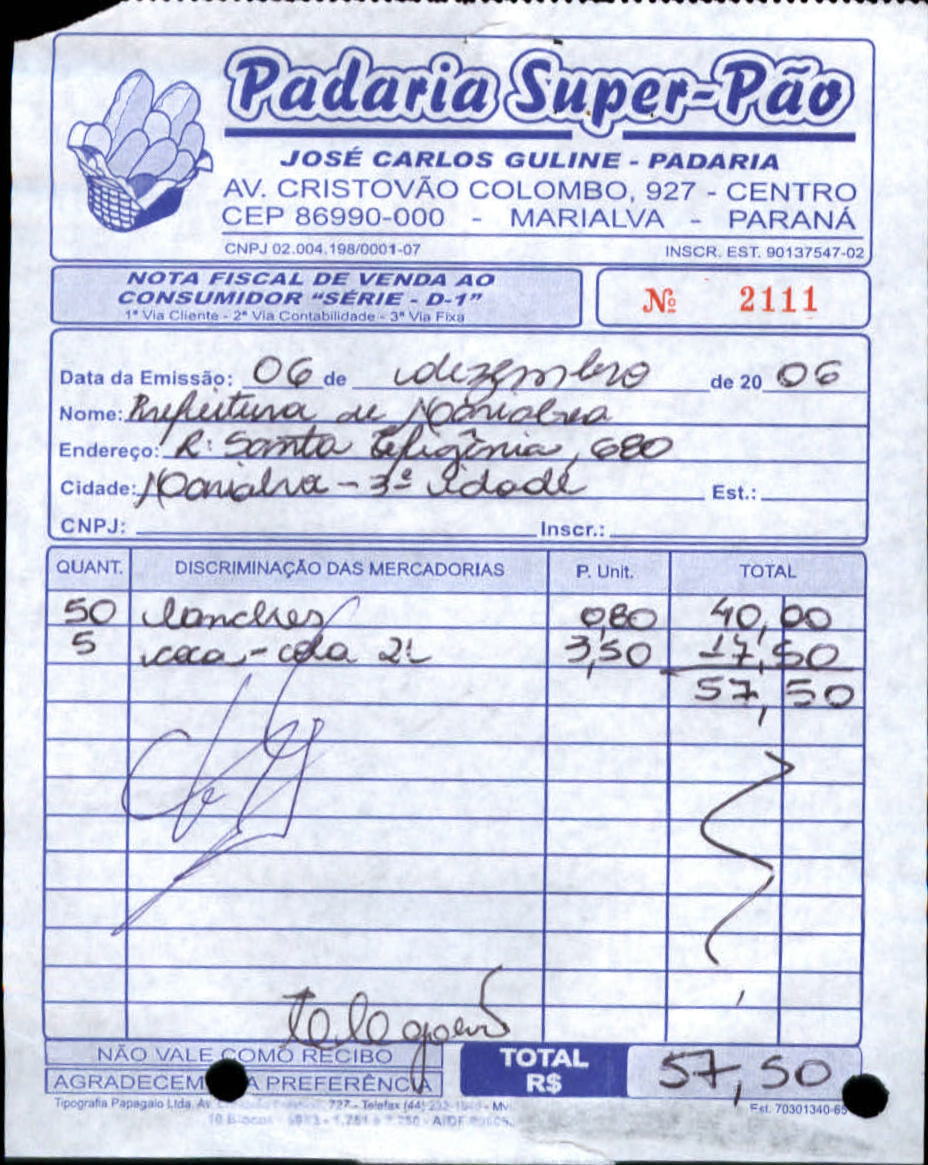 Padaria Super-Pão
JOSÉ CARLOS GULINE - PADARIA
AV. CRISTOVÃO COLOMBO, 927 - CENTRO
CEP 86990-000 - MARIALVA - PARANÁ
CNPJ 02.004.198/0001-07 INSCR. EST. 90137547-02
NOTA FISCAL DE VENDA AO
CONSUMIDOR "SÉRIE - D-1"
1ª Via Cliente - 2ª Via Contabilidade - 3ª Via Fixa
Nº 2111
Data da Emissão: 06 de dezembro de 20 06
Nome: Prefeitura de Marialva
Endereço: R: Santa Efigênia, 680
Cidade: Marialva - 3ª idade Est.:
CNPJ: Inscr.:
QUANT. DISCRIMINAÇÃO DAS MERCADORIAS P. Unit. TOTAL
50 lanches 0,80 40,00
5 coca-cola 2L 3,50 17,50
57,50
NÃO VALE COMO RECIBO
AGRADECEMOS A PREFERÊNCIA
TOTAL
R$ 57,50
Tipografia Papagaio Ltda. Av. 727 - Telefax (44)
10 Blocos
Est. 70301340-65